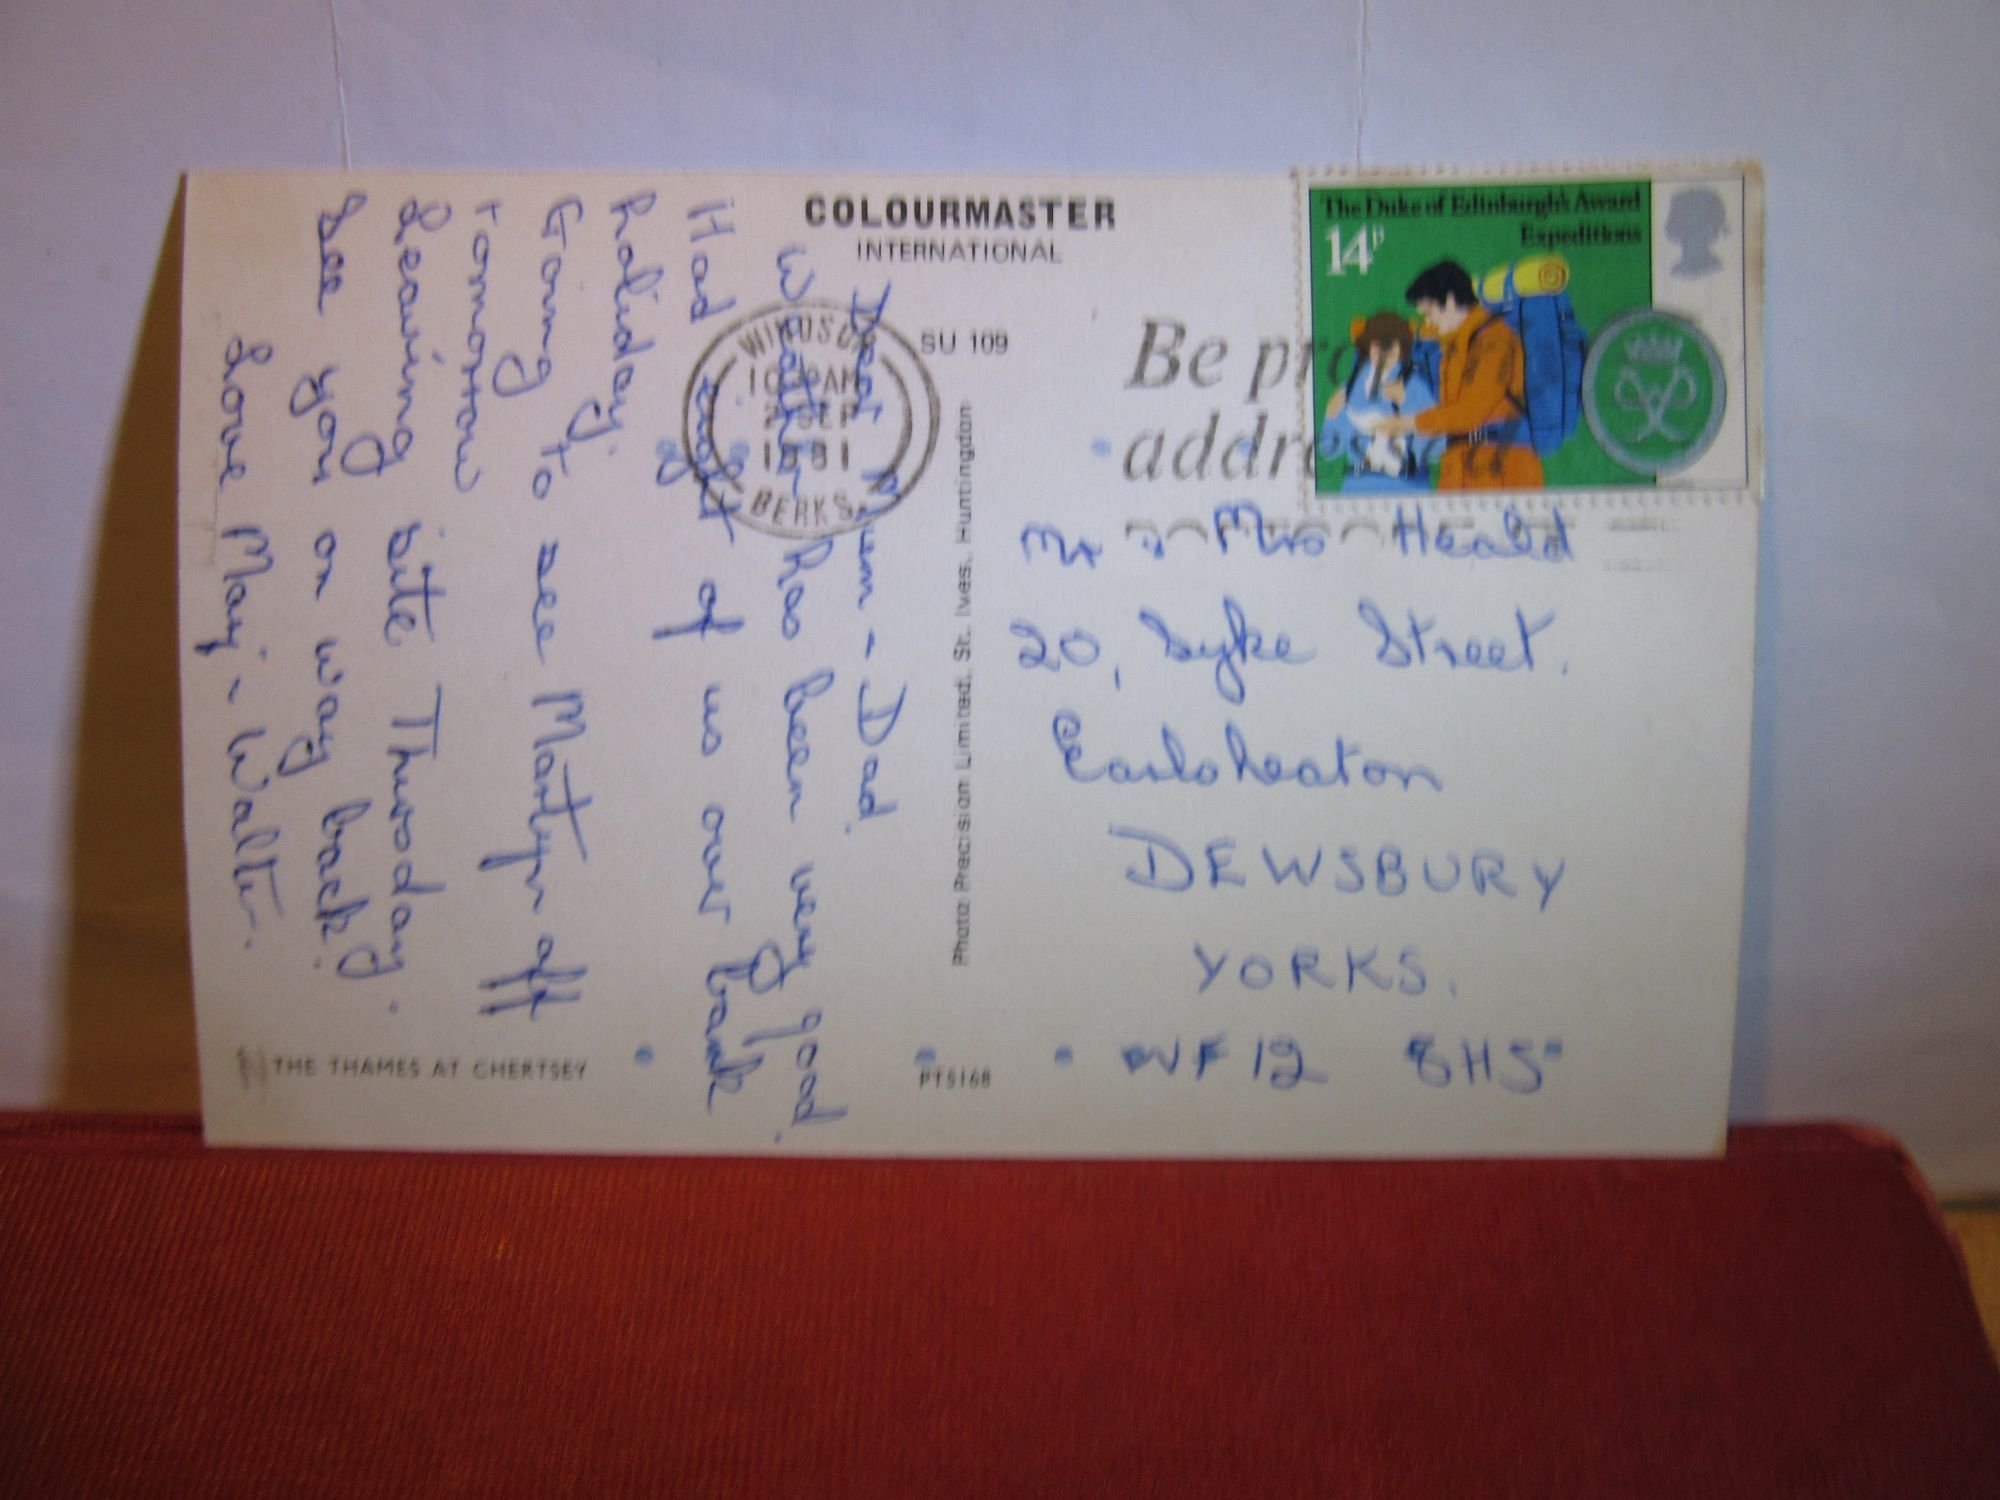 COLOURMASTER
INTERNATIONAL
SU 109
Photo: Precision Limited, St. Ives, Huntingdon
THE THAMES AT CHERTSEY
PT5168
The Duke of Edinburgh's Award
Expeditions
14P
WINDSOR
SEP
1981
BERKS.
Be
Dear Mum - Dad.
Weather has been very good.
Had eight of us over bank
holiday.
Going to see Martyn off
tomorrow
Leaving site Thursday.
See you on way back.
Love May - Walter.
Mr & Mrs Heald
20, Syke Street.
Earlsheaton
DEWSBURY
YORKS.
WF12 8HS